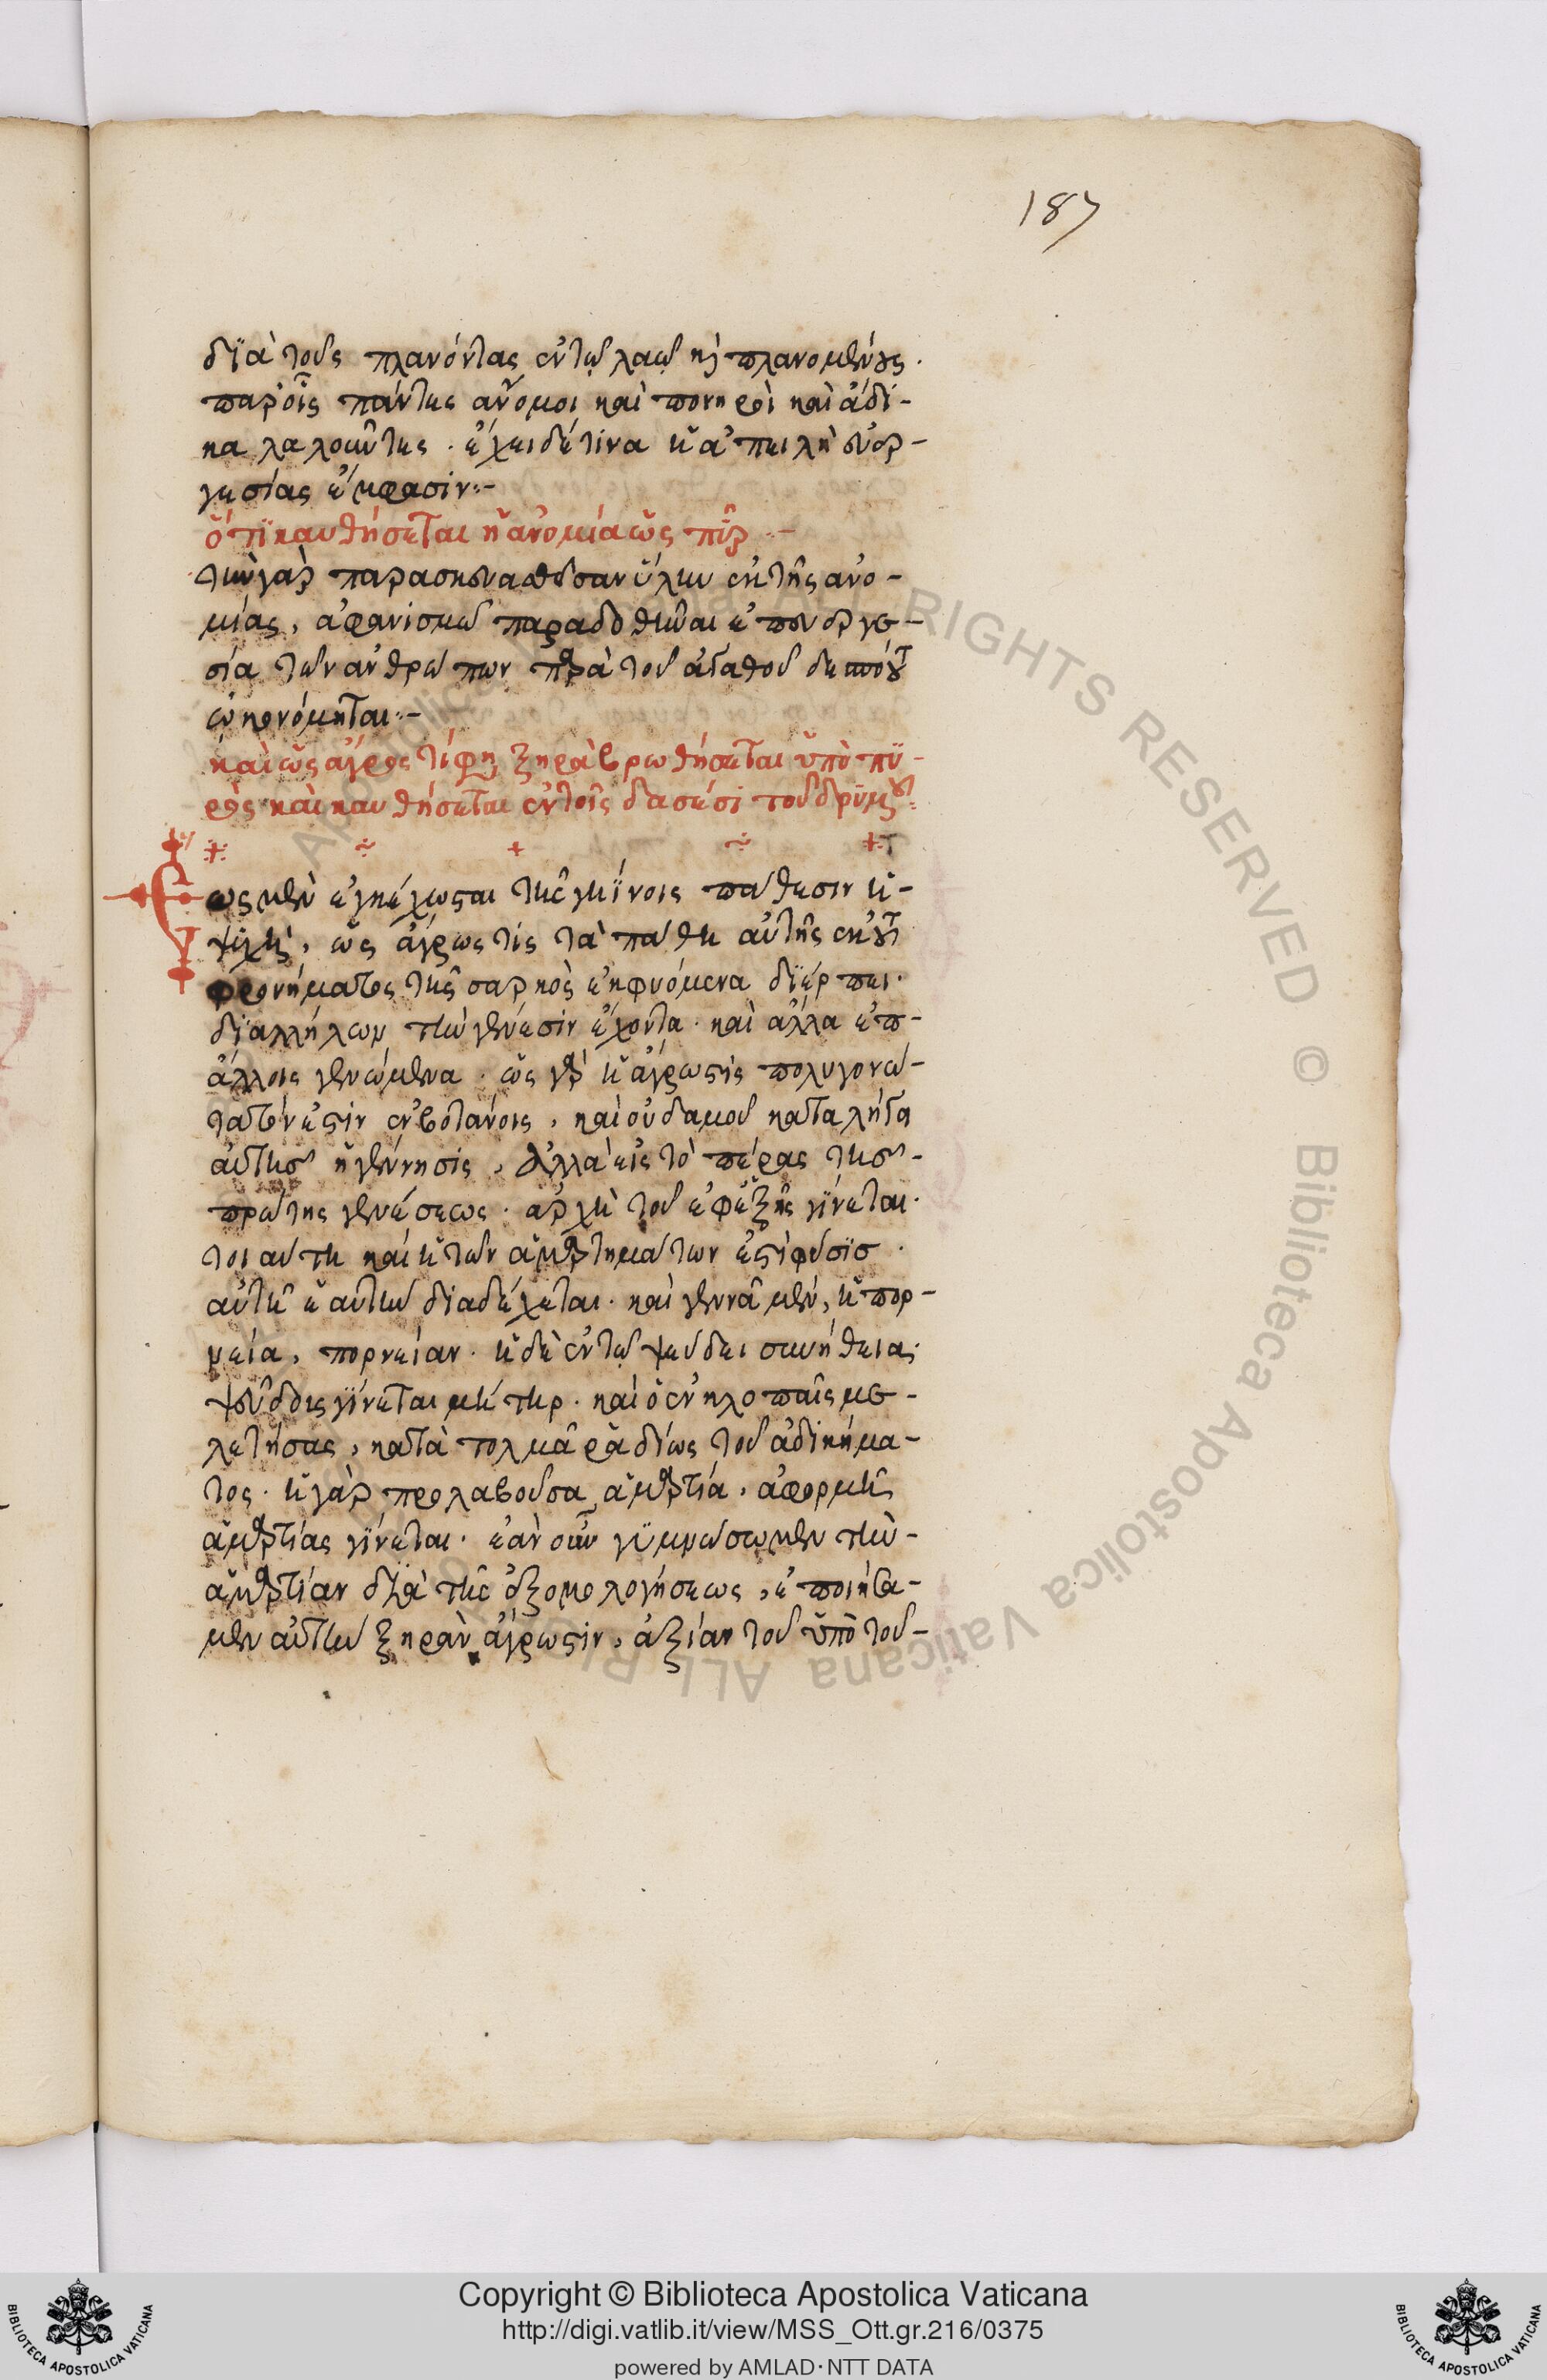 187
δϊὰ τοὺς πλανόντας ἐν τῷ λαῷ κὶ πλανομένους.
παρ' οἷς πάντες ἄνομοι καὶ πονηροὶ καὶ ἄδι-
κα λαλοῦντες. ἔχει δέ τίνα ἡ ἀπειλὴ εὐερ-
γεσίας ἔμφασιν:-
ὅτι καυθήσεται ἡ ἀνομία ὡς πῦρ:-
τὴν γὰρ παρασκευασθεῖσαν ὕλην ἐκ τῆς ἀνο-
μίας, ἀφανισμῷ παραδοθῆναι ἐπ' εὐεργε-
σία τῶν ἀνθρώπων παρὰ τοῦ ἀγαθοῦ δεσπότου
ὠκονόμηται:-
καὶ ὡς ἄγροστίς ξηρὰ βρωθήσεται ὑπὸ πϋ-
ρὸς καὶ καυθήσεται ἐν τοῖς δασέσι τοῦ δρϋμοῦ:
Εως μὲν ἐγκέχωσται τῆς γηΐνοις πάθεσιν ἡ-
ψυχὴ, ὡς ἄγρωστις τὰ πάθη αὐτῆς ἐκ τοῦ
φρονήματος τῆς σαρκὸς ἐκφυόμενα διέρπει.
δϊαλλήλων τὴν γένεσιν ἔχοντα. καὶ ἄλλα ἐπ-
άλλοις γενώμενα. ὡς γὰρ ἡ ἄγρωστις πολυγονώ-
τατόν ἐστιν ἐν βοτάνοις, καὶ οὐδαμοῦ καταλήγει
αὐτῆς ἡ γέννησις, ἀλλὰ εἰς τὸ πέρας τῆς-
πρώτης γενέσεως. ἀρχὴ τοῦ ἐφεξῆς γίνεται.
τοιαύτη καί ἡ τῶν ἁμαρτημάτων ἐστὶ φύσϊς.
αὐτὴ ἑαυτὴν διαδέχεται. καὶ γεννᾶ μὲν, ἡ πορ-
νεία, πορνείαν. ἡ δὲ ἐν τῷ ψεύδει συνήθεια,
ψεύδους γίνεται μήτηρ. καὶ ὁ ἐν κλοπαῖς με-
λετήσας, κατὰ τολμᾶ ῥᾳδίως τοῦ ἀδικήμα-
τος. ἡ γὰρ προλαβοῦσα ἁμαρτία, ἀφορμὴ
ἁμαρτίας γίνεται. ἐὰν οὖν γϋμνώσωμεν τὴν-
ἁμαρτίαν διὰ τῆς ἐξομολογήσεως, ἐποιήσα-
μεν αὐτὴν ξηρὰν ἄγρωστιν, ἀξίαν τοῦ ὑπὸ τοῦ-
Copyright © Biblioteca Apostolica Vaticana
http://digi.vatlib.it/view/MSS_Ott.gr.216/0375
powered by AMLAD·NTT DATA
BIBLIOTECA APOSTOLICA VATICANA
BIBLIOTECA APOSTOLICA VATICANA